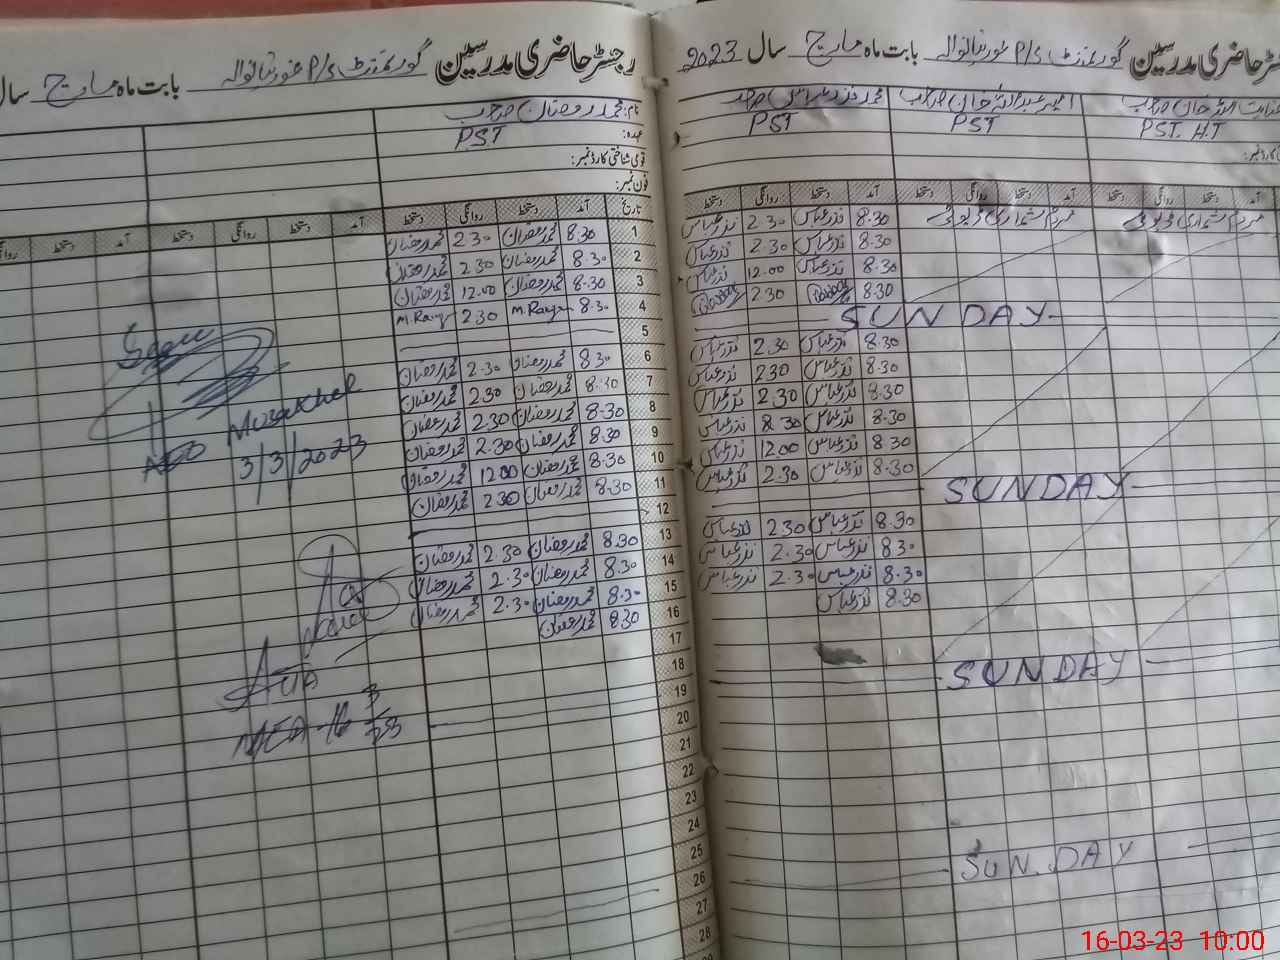 رجسٹر حاضری مدرسین گورنمنٹ P/S بابت ماہ مارچ سال 2023
PST. H.T
PST
PST
آمد دستخط روانگی دستخط آمد دستخط روانگی دستخط آمد دستخط روانگی دستخط
مردم شماری ڈیوٹی مردم شماری ڈیوٹی
8.30 نذر عباس 2.30 نذر عباس
8.30 نذر عباس 2.30 نذر عباس
8.30 نذر عباس 12.00 نذر عباس
8.30 2.30
SUNDAY
8.30 نذر عباس 2.30 نذر عباس
8.30 نذر عباس 2.30 نذر عباس
8.30 نذر عباس 2.30 نذر عباس
8.30 نذر عباس 8.30 نذر عباس
8.30 نذر عباس 12.00 نذر عباس
8.30 نذر عباس 2.30 نذر عباس
SUNDAY
8.30 نذر عباس 2.30 نذر عباس
8.30 نذر عباس 2.30 نذر عباس
8.30 نذر عباس 2.30 نذر عباس
8.30 نذر عباس
SUNDAY
SUNDAY
رجسٹر حاضری مدرسین گورنمنٹ P/S بابت ماہ مارچ سال
نام: محمد رمضان صاحب
عہدہ: PST
قومی شناختی کارڈ نمبر:
فون نمبر:
تاریخ آمد دستخط روانگی دستخط آمد دستخط روانگی دستخط آمد دستخط روانگی
1 8.30 محمد رمضان 2.30 محمد رمضان
2 8.30 محمد رمضان 2.30 محمد رمضان
3 8.30 محمد رمضان 12.00 محمد رمضان
4 8.30 2.30
5
6 8.30 محمد رمضان 2.30 محمد رمضان
7 8.30 محمد رمضان 2.30 محمد رمضان
8 8.30 محمد رمضان 2.30 محمد رمضان
9 8.30 محمد رمضان 2.30 محمد رمضان
10 8.30 محمد رمضان 12.00 محمد رمضان
11 8.30 محمد رمضان 2.30 محمد رمضان
12
13 8.30 محمد رمضان 2.30 محمد رمضان
14 8.30 محمد رمضان 2.30 محمد رمضان
15 8.30 محمد رمضان 2.30 محمد رمضان
16 8.30 محمد رمضان
17
18
19
20
21
22
23
24
25
26
27
28
Seen
Musakhel
3/3/2023
MEA-16
16-03-23 10:00